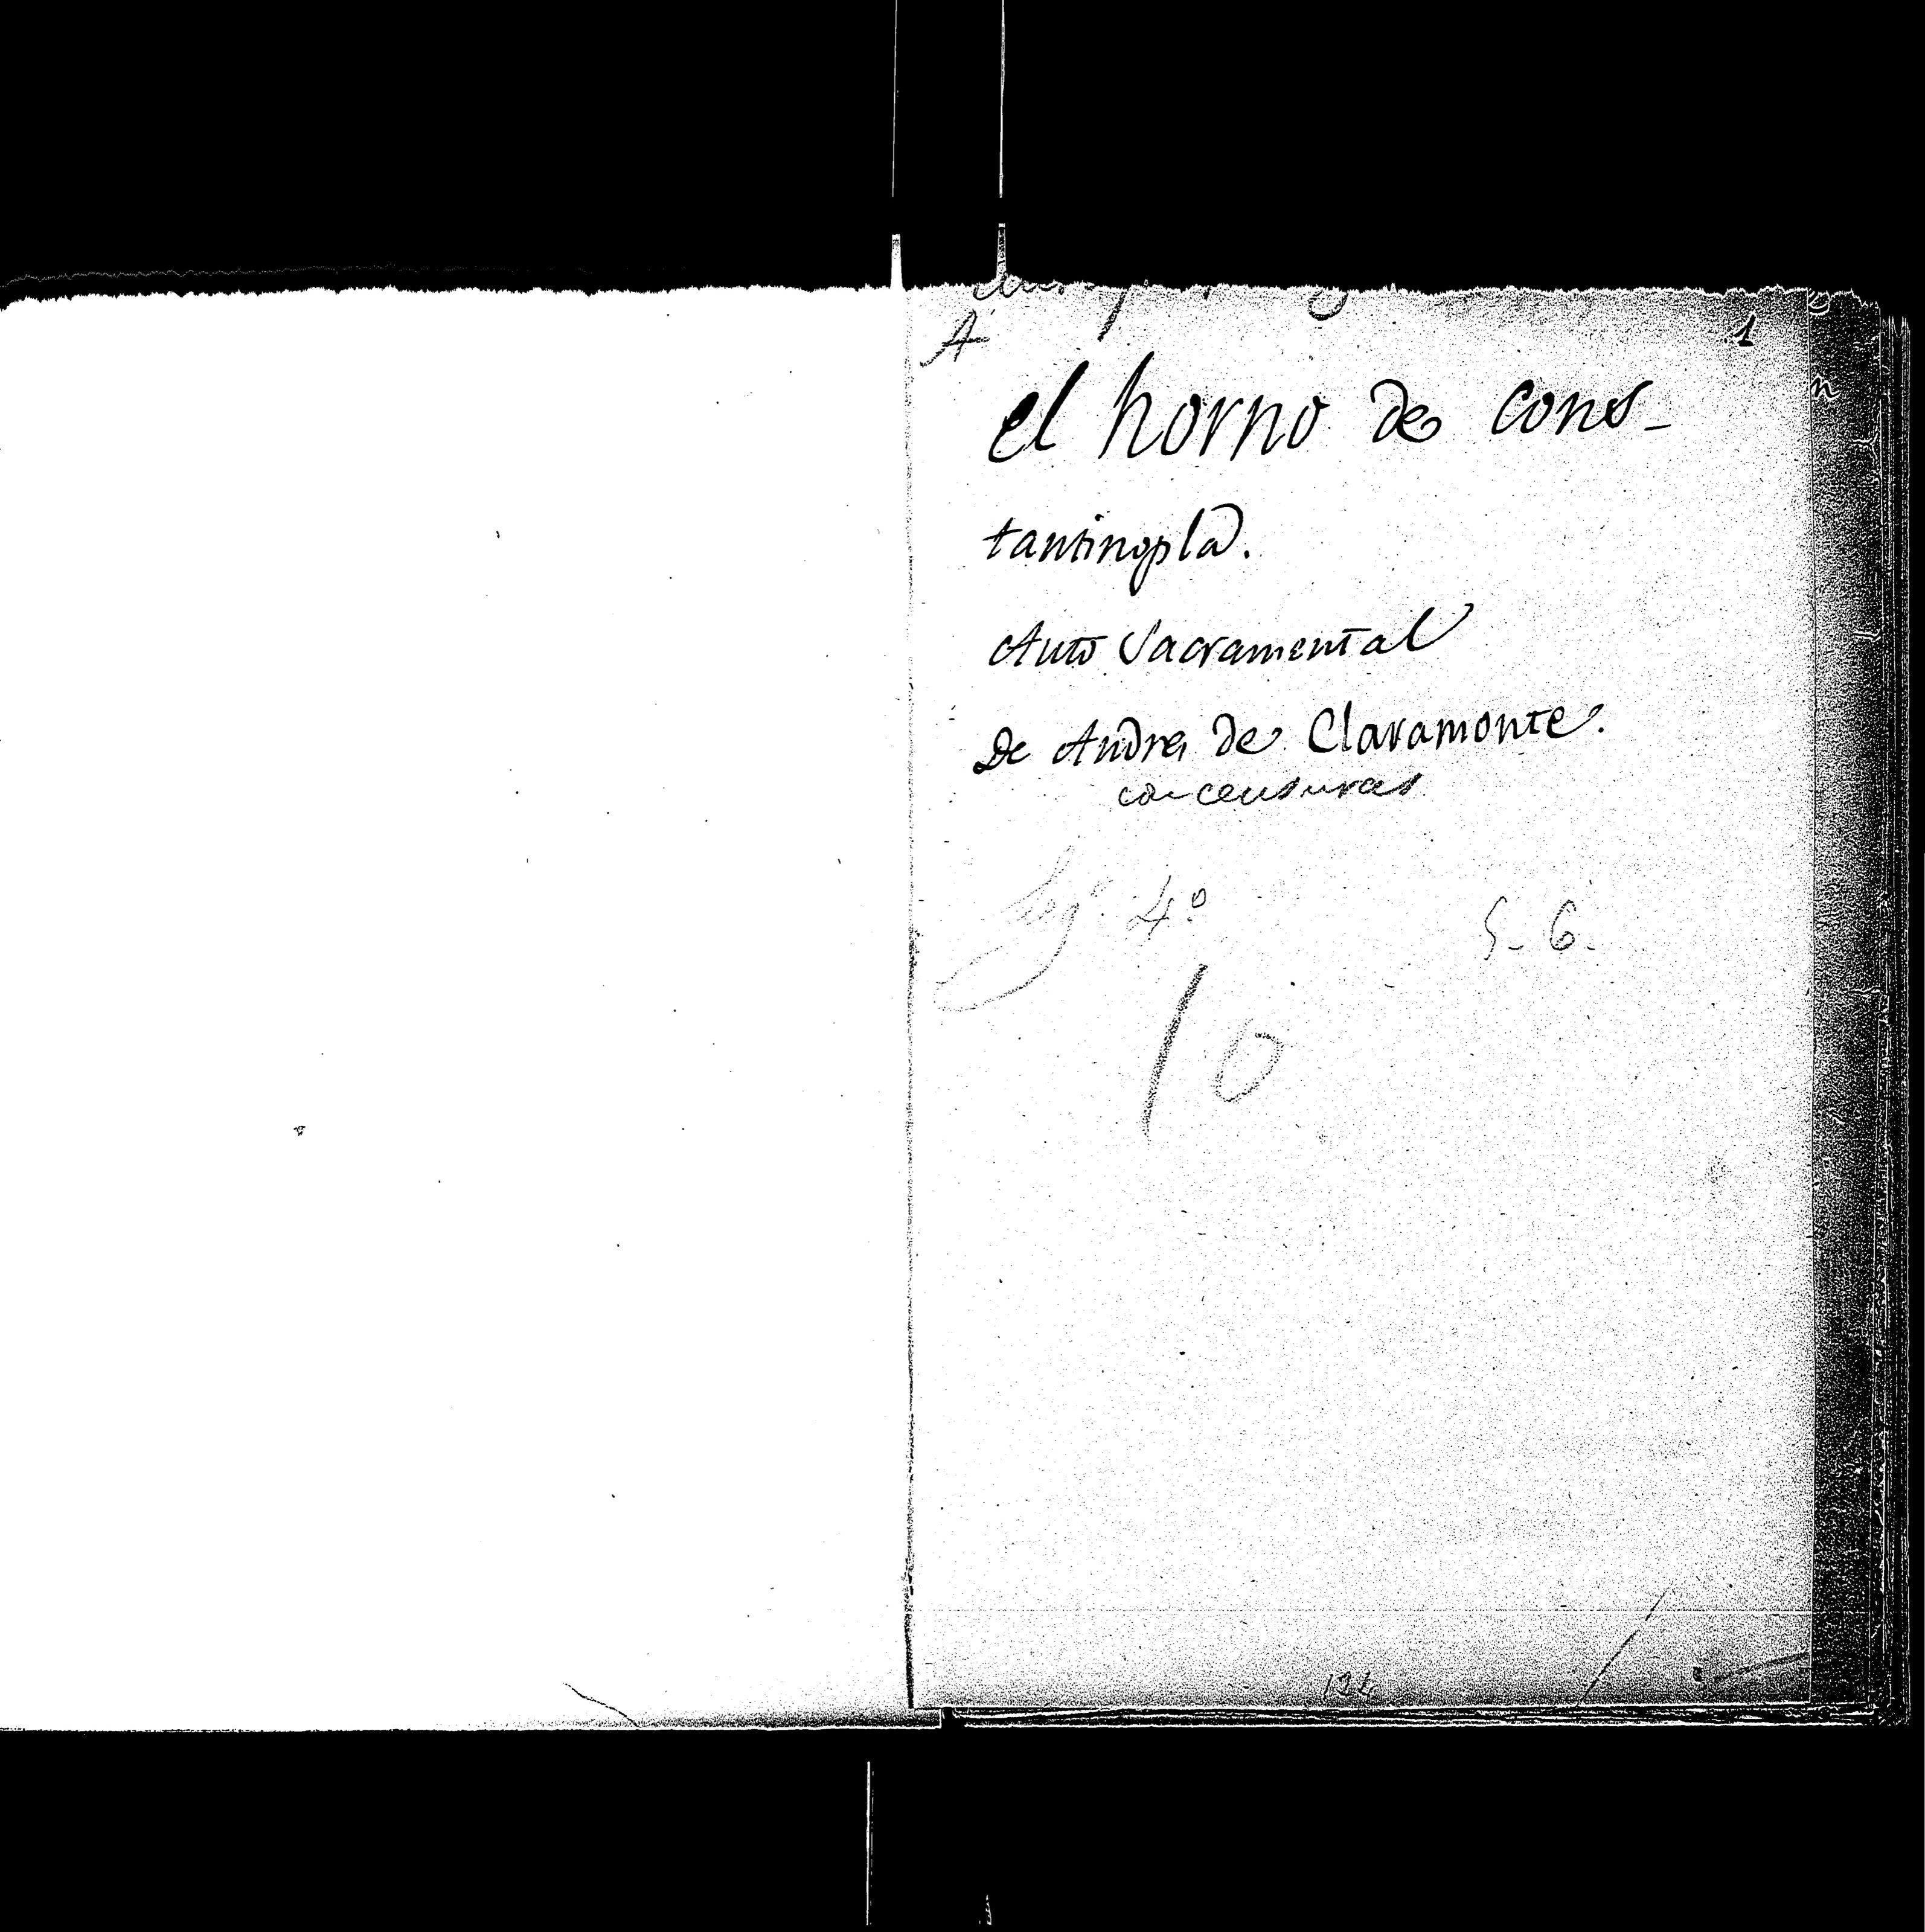 A
1
el horno de cons-
tantinopla.
Auto Sacramental
De Andres de Claramonte.
con censuras
Leg.º 4.º
5-6-
10